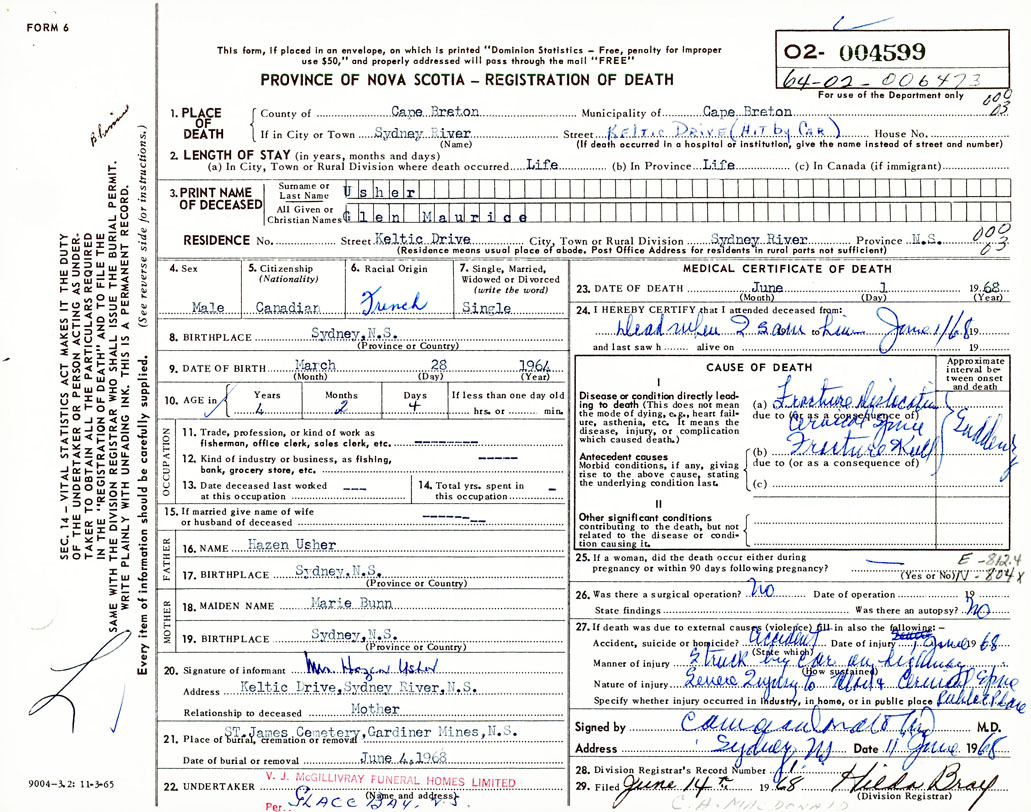 FORM 6
This form, if placed in an envelope, on which is printed "Dominion Statistics – Free, penalty for improper
use $50," and properly addressed will pass through the mail "FREE"
PROVINCE OF NOVA SCOTIA – REGISTRATION OF DEATH
02- 004599
64-02-006473
For use of the Department only
000
03
1. PLACE OF DEATH
County of Cape Breton Municipality of Cape Breton
If in City or Town Sydney River Street Keltic Drive (Hit by Car) House No.
(Name) (If death occurred in a hospital or institution, give the name instead of street and number)
2. LENGTH OF STAY (in years, months and days)
(a) In City, Town or Rural Division where death occurred Life (b) In Province Life (c) In Canada (if immigrant)
3. PRINT NAME OF DECEASED
Surname or Last Name Usher
All Given or Christian Names Glen Maurice
RESIDENCE No. Street Keltic Drive City, Town or Rural Division Sydney River Province N.S.
(Residence means usual place of abode. Post Office Address for residents in rural parts not sufficient)
000
03
4. Sex
Male
5. Citizenship
(Nationality)
Canadian
6. Racial Origin
French
7. Single, Married,
Widowed or Divorced
(write the word)
Single
8. BIRTHPLACE Sydney, N.S.
(Province or Country)
9. DATE OF BIRTH March 28 1964
(Month) (Day) (Year)
10. AGE in Years Months Days If less than one day old
4 2 4 hrs. or min.
OCCUPATION
11. Trade, profession, or kind of work as
fisherman, office clerk, sales clerk, etc. --------
12. Kind of industry or business, as fishing,
bank, grocery store, etc. -----
13. Date deceased last worked ---
at this occupation
14. Total yrs. spent in -
this occupation
15. If married give name of wife -------
or husband of deceased
FATHER
16. NAME Hazen Usher
17. BIRTHPLACE Sydney, N.S.
(Province or Country)
MOTHER
18. MAIDEN NAME Marie Bunn
19. BIRTHPLACE Sydney, N.S.
(Province or Country)
20. Signature of informant Mrs. Hazen Usher
Address Keltic Drive, Sydney River, N.S.
Relationship to deceased Mother
21. Place of burial, cremation or removal ST. James Cemetery, Gardiner Mines, N.S.
Date of burial or removal June 4, 1968
22. UNDERTAKER V. J. McGILLIVRAY FUNERAL HOMES LIMITED
(Name and address)
Per. GLACE BAY, N.S.
MEDICAL CERTIFICATE OF DEATH
23. DATE OF DEATH June 1 1968
(Month) (Day) (Year)
24. I HEREBY CERTIFY that I attended deceased from:
Dead when I saw him June 1/68 19
and last saw h alive on 19
CAUSE OF DEATH
Approximate
interval be-
tween onset
and death
I
Disease or condition directly lead-
ing to death (This does not mean
the mode of dying, e.g., heart fail-
ure, asthenia, etc. It means the
disease, injury, or complication
which caused death.)
(a) Fracture Dislocation
due to (or as a consequence of)
Cervical Spine
Antecedent causes
Morbid conditions, if any, giving
rise to the above cause, stating
the underlying condition last.
(b) Fracture
due to (or as a consequence of)
(c)
Suddenly
II
Other significant conditions
contributing to the death, but not
related to the disease or condi-
tion causing it.
25. If a woman, did the death occur either during
pregnancy or within 90 days following pregnancy?
(Yes or No)
E-812.4
N-804x
26. Was there a surgical operation? No Date of operation 19
State findings Was there an autopsy? No
27. If death was due to external causes (violence) fill in also the following:–
Accident, suicide or homicide? Accident Date of injury 1 June 1968
(State which)
Manner of injury Struck by car on highway
(How sustained)
Nature of injury Severe Injury to Head & Cervical Spine
Specify whether injury occurred in industry, in home, or in public place Public Place
Signed by M.D.
Address Sydney NS Date 11 June 1968
28. Division Registrar's Record Number
29. Filed June 14th 1968 Hilda Bray
(Division Registrar)
C. A. MACDONALD
SEC. 14 – VITAL STATISTICS ACT MAKES IT THE DUTY
OF THE UNDERTAKER OR PERSON ACTING AS UNDER-
TAKER TO OBTAIN ALL THE PARTICULARS REQUIRED
IN THE "REGISTRATION OF DEATH" AND TO FILE THE
SAME WITH THE DIVISION REGISTRAR WHO SHALL ISSUE THE BURIAL PERMIT.
WRITE PLAINLY WITH UNFADING INK. THIS IS A PERMANENT RECORD.
Every item of information should be carefully supplied. (See reverse side for instructions.)
9004-3.2: 11-3-65